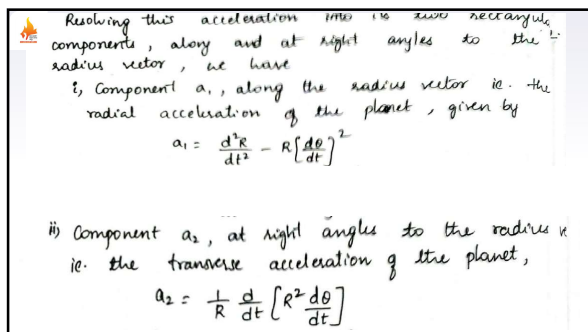 Resolving this acceleration into its two rectangula
components, along and at right angles to the
radius vector, we have
i, Component a₁, along the radius vector ie. the
radial acceleration of the planet, given by
a₁ = d²R/dt² - R[dθ/dt]²
ii) Component a₂, at right angles to the radius v
ie. the transverse acceleration of the planet,
a₂ = 1/R d/dt [R² dθ/dt]